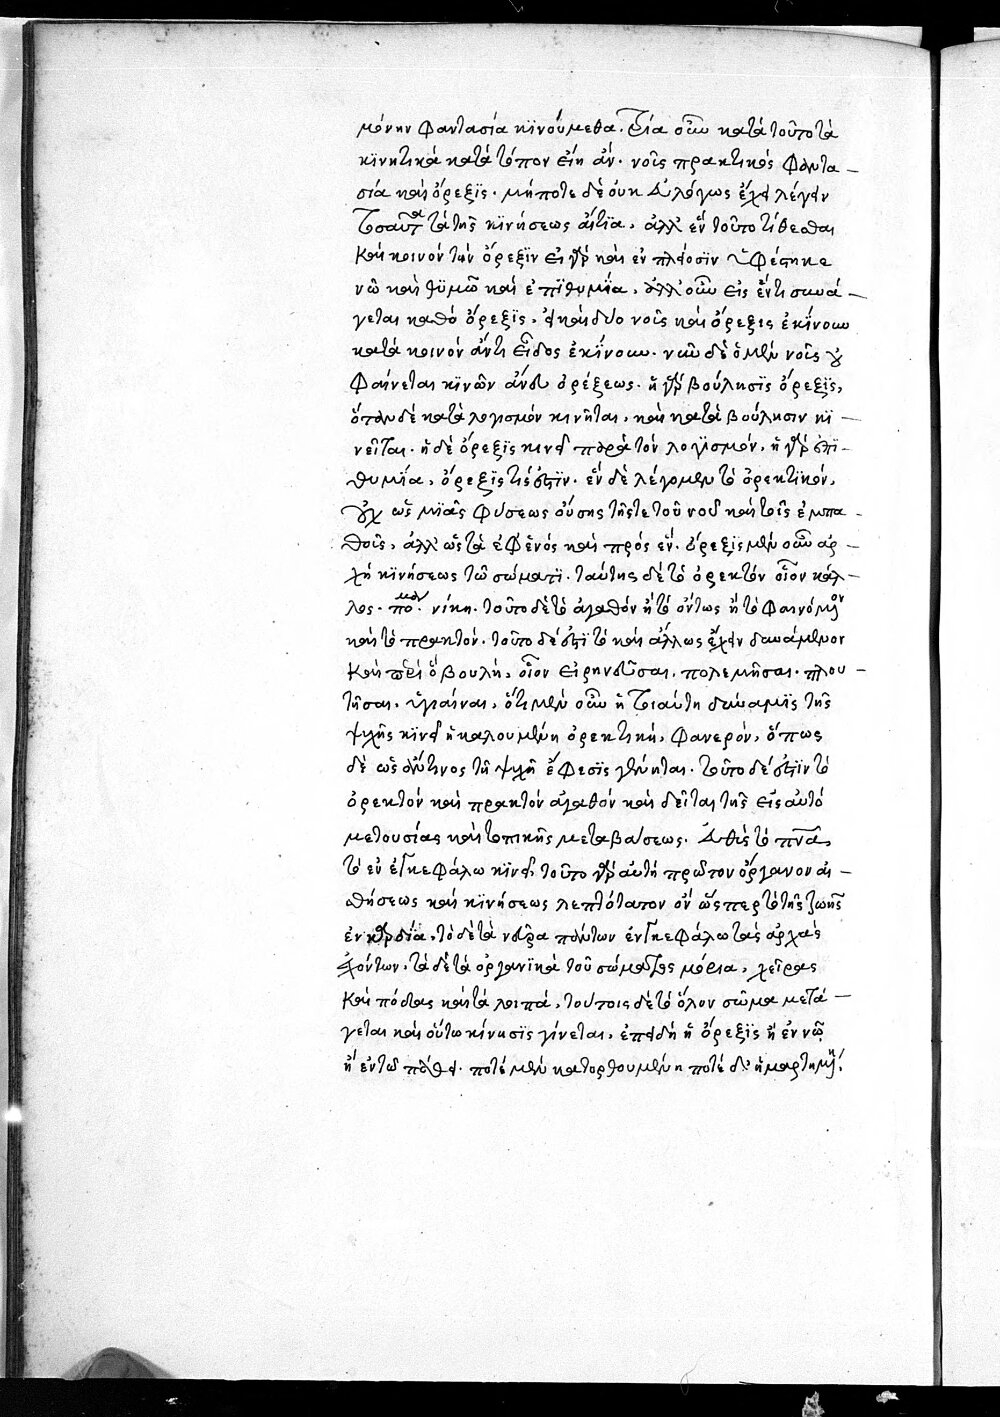 μόνην φαντασία κϊνούμεθα. τρία οὖν κατὰ τοῦτο τὰ
κϊνητικὰ κατὰ τόπον εἴη ἄν. νοῦς πρακτικὸς φαντα –
σία καὶ ὄρεξϊς. μήποτε δὲ οὐκ ἀλόγως ἔχει λέγειν
τοσαῦτα τὰ τῆς κϊνήσεως αἴτϊα, ἀλλ' ἓν τοῦτο τίθεσθαι
καὶ κοινὸν τὴν ὄρεξϊν εἰ γὰρ καὶ ἐν πλείοσϊν ὑφέστηκε
νῶ καὶ θϋμῶ καὶ ἐπϊθυμία, ἀλλ' οὖν εἰς ἕν τι συνά –
γεται καθὸ ὄρεξϊς, εἰ καὶ δύο νοῦς καὶ ὄρεξις ἐκίνουν
κατὰ κοινὸν ἄν τι εἶδος ἐκίνουν. νῦν δὲ ὁ μὲν νοῦς οὐ
φαίνεται κϊνῶν ἄνευ ὀρέξεως. ἡ γὰρ βούλησϊς ὄρεξϊς,
ὅταν δὲ κατὰ λογισμὸν κινῆται, καὶ κατὰ βούλησιν κϊ –
νεῖται. ἡ δὲ ὄρεξϊς κινεῖ παρὰ τὸν λογϊσμόν, ἡ γὰρ ἐπϊ –
θυμΐα, ὄρεξίς τίς ἐστϊν. ἓν δὲ λέγομεν τὸ ὀρεκτϊκόν,
οὐχ ὡς μϊᾶς φύσεως οὔσης τῆς τε τοῦ νοῦ καὶ τοῖς ἐμπα –
θοῖς, ἀλλ' ὡς τὰ ἐφ' ἑνὸς καὶ πρὸς ἕν. ὄρεξις μὲν οὖν ἀρ –
χὴ κϊνήσεως τῶ σώματϊ. ταύτης δὲ τὸ ὀρεκτὸν οἷον κάλ –
λος. νίκη. τοῦτο δὲ τὸ ἀγαθὸν ἢ τὸ ὄντως ἢ τὸ φαινόμενον
καὶ τὸ πρακτόν. τοῦτο δέ ἐστϊ τὸ καὶ ἄλλως ἔχειν δυνάμενον
καὶ περὶ ὃ βουλή, οἷον εἰρηνεῦσαι, πολεμῆσαι. πλου –
τῆσαι. ὑγιαίναι, ὅτι μὲν οὖν ἡ τοιαύτη δύναμϊς τῆς
ψυχῆς κϊνεῖ ἡ καλουμένη ὀρεκτική, φανερόν, ὅπως
δὲ ὡς ἄν τινος τῆ ψυχῆ ἔφεσϊς γένηται. τοῦτο δέ ἐστϊν τὸ
ὀρεκτὸν καὶ πρακτὸν ἀγαθὸν καὶ δεῖται τῆς εἰς αὐτὸ
μετουσίας καὶ τοπικῆς μεταβάσεως. εὐθὺς τὸ πνεῦμα,
τὸ ἐν ἐγκεφάλω κϊνεῖ, τοῦτο γὰρ αὐτὴ πρῶτον ὄργανον αἰ –
θήσεως καὶ κϊνήσεως λεπτότατον ὂν ὥσπερ τὸ τῆς ζωῆς
ἐν καρδία, τὸ δὲ τὰ νεῦρα πάντων ἐν ἐγκεφάλω τὰς ἀρχὰς
ἐχόντων, τὰ δὲ τὰ ὀργανϊκὰ τοῦ σώματος μόρια, χεῖρας
καὶ πόδας καὶ τὰ λοιπά, τούτοις δὲ τὸ ὅλον σῶμα μετά –
γεται καὶ οὕτω κίνησϊς γίνεται, ἐπειδὴ ἡ ὄρεξϊς ἢ ἐν νῶ
ἢ ἐν τῶ πάθει. ποτὲ μὲν κατορθουμένη ποτὲ δ' ἡμαρτημένη,